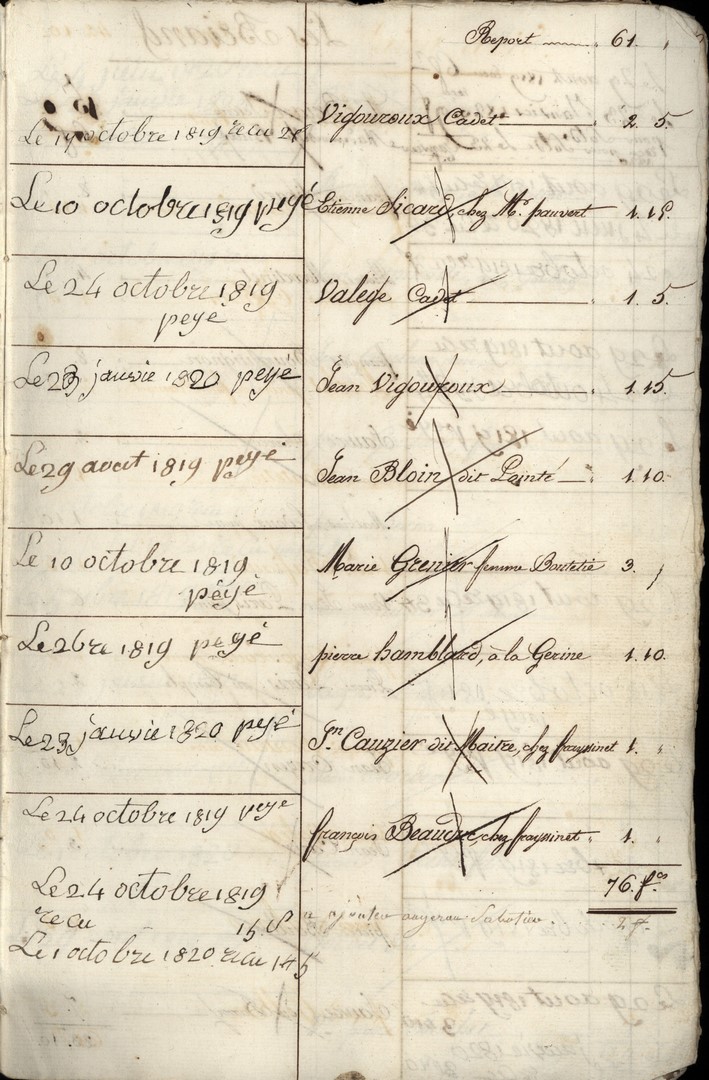 Report 61. "
Le 19 octobre 1819 recu 2f Vigouroux Cadet 2. 5.
Le 10 octobre 1819 peyé Etienne Sicard, chez Mr. pauvert 1. 15.
Le 24 octobre 1819 Valège Cadet 1. 5.
peyé
Le 23 janvie 1820 peyé Jean Vigouroux 1. 15.
Le 29 aout 1819 peyé Jean Bloin dit Pointé 1. 10.
Le 10 octobre 1819 Marie Grenier femme 3. "
peyé
Le 26re 1819 peyé pierre hamblard, à la Gerine 1. 10.
Le 23 janvie 1820 peyé Jn. Cauzier dit Maitre, chez frayssinet 1. "
Le 24 octobre 1819 peye
françois chez frayssinet 1. "
76. fcs
Le 24 octobre 1819
recu 15 s a ajouter 2 f.
Le 1 octobre 1820 recu 1f 5